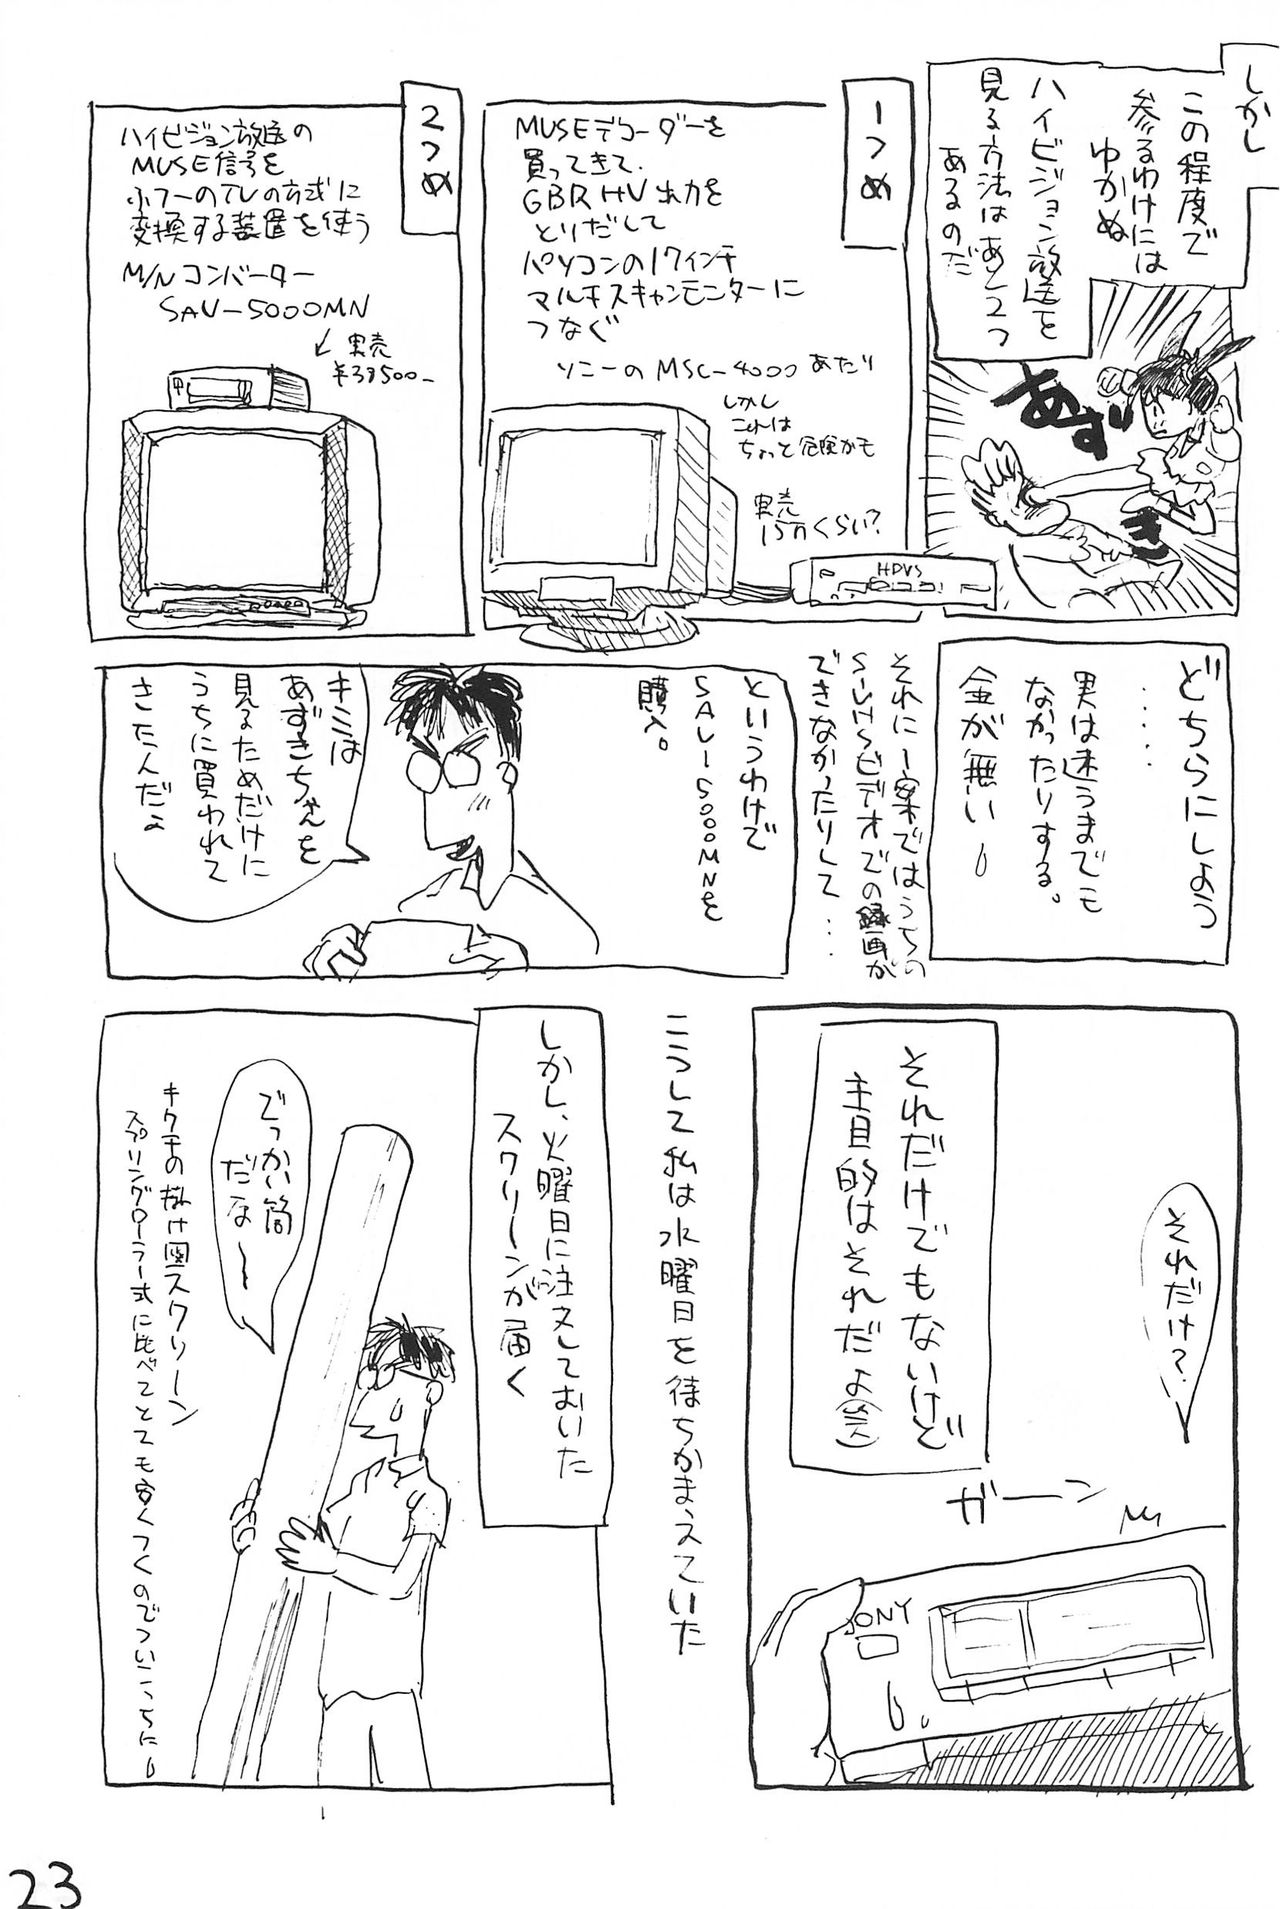 しかし
この程度で
参るわけには
ゆかぬ
ハイビジョン放送を
見る方法はあと2つ
あるのだ
あずき
1つめ
MUSEデコーダーを
買ってきて、
GBR HV出力を
とりだして
パソコンの17インチ
マルチスキャンモニターに
つなぐ
ソニーのMSC-4000あたり
しかし
これは
ちょっと危険かも
実売
15万くらい?
HDVS
2つめ
ハイビジョン放送の
MUSE信号を
ふつーのTVの方式に
変換する装置を使う
M/Nコンバーター
SAV-5000MN
実売
¥38500-
どちらにしよう
・・・・
実は迷うまでも
なかったりする。
金が無い
それに1案ではうちの
S-VHSビデオでの録画が
できなかったりして・・・
というわけで
SAV-5000MNを
購入。
キミは
あずきちゃんを
見るためだけに
うちに買われて
きたんだよ
それだけ?
それだけでもないけど
主目的はそれだよ(笑)
ガーン
SONY
こうして私は水曜日を待ちかまえていた
しかし、火曜日に注文しておいた
スクリーンが届く
でっかい筒
だな〜
キクチの掛け図スクリーン
スプリングローラー式に比べてとても安くつくのでついこっちに
23